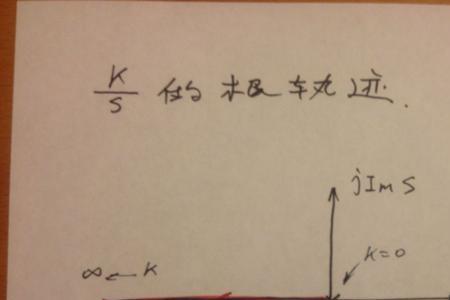 K/S 的根轨迹.
jIm S
K=0
∞ ← K